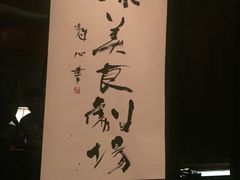 美食劇場
心書